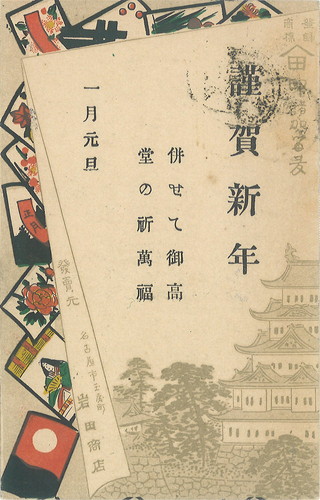 謹賀新年
併せて御高
堂の祈萬福
一月元旦
發賣元
名古屋市玉屋町
岩田商店